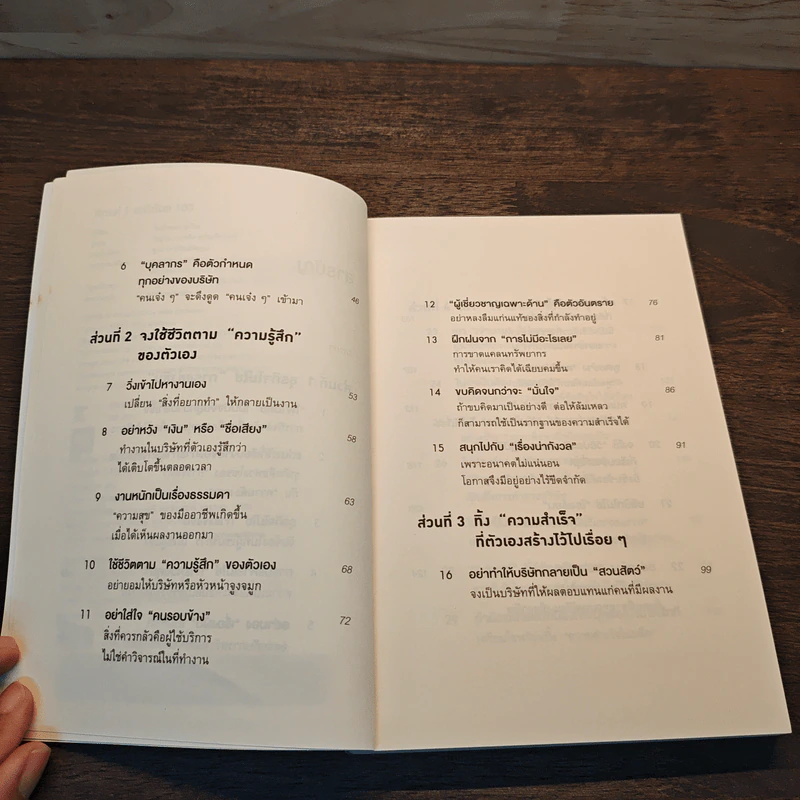 6 “บุคลากร” คือตัวกำหนด
ทุกอย่างของบริษัท
“คนเจ๋ง ๆ” จะดึงดูด “คนเจ๋ง ๆ” เข้ามา 46
ส่วนที่ 2 จงใช้ชีวิตตาม “ความรู้สึก”
ของตัวเอง
7 วิ่งเข้าไปหางานเอง 53
เปลี่ยน “สิ่งที่อยากทำ” ให้กลายเป็นงาน
8 อย่าหวัง “เงิน” หรือ “ชื่อเสียง” 58
ทำงานในบริษัทที่ตัวเองรู้สึกว่า
ได้เติบโตขึ้นตลอดเวลา
9 งานหนักเป็นเรื่องธรรมดา 63
“ความสุข” ของมืออาชีพเกิดขึ้น
เมื่อได้เห็นผลงานออกมา
10 ใช้ชีวิตตาม “ความรู้สึก” ของตัวเอง 68
อย่ายอมให้บริษัทหรือหัวหน้าจูงจมูก
11 อย่าใส่ใจ “คนรอบข้าง” 72
สิ่งที่ควรกลัวคือผู้ใช้บริการ
ไม่ใช่คำวิจารณ์ในที่ทำงาน
12 “ผู้เชี่ยวชาญเฉพาะด้าน” คือตัวอันตราย 76
อย่าหลงลืมแก่นแท้ของสิ่งที่กำลังทำอยู่
13 ฝึกฝนจาก “การไม่มีอะไรเลย” 81
การขาดแคลนทรัพยากร
ทำให้คนเราคิดได้เฉียบคมขึ้น
14 ขบคิดจนกว่าจะ “มั่นใจ” 86
ถ้าขบคิดมาเป็นอย่างดี ต่อให้ล้มเหลว
ก็สามารถใช้เป็นรากฐานของความสำเร็จได้
15 สนุกไปกับ “เรื่องน่ากังวล” 91
เพราะอนาคตไม่แน่นอน
โอกาสจึงมีอยู่อย่างไร้ขีดจำกัด
ส่วนที่ 3 ทิ้ง “ความสำเร็จ”
ที่ตัวเองสร้างไว้ไปเรื่อย ๆ
16 อย่าทำให้บริษัทกลายเป็น “สวนสัตว์” 99
จงเป็นบริษัทที่ให้ผลตอบแทนแก่คนที่มีผลงาน